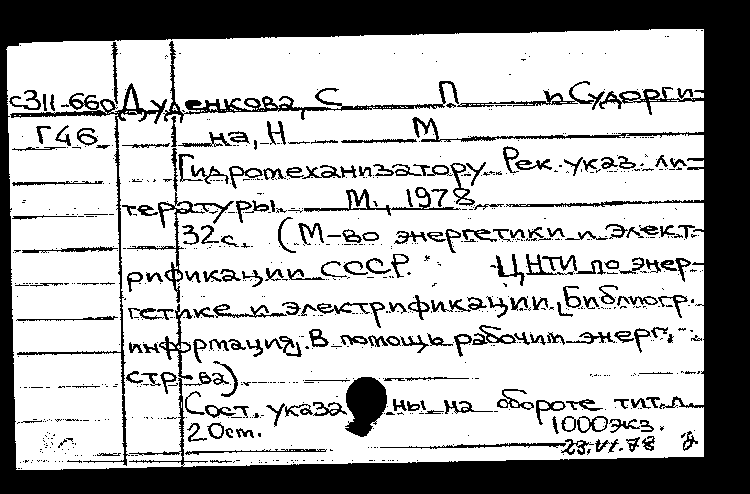 с311-660 Дуденкова, С П и Сударги-
Г46 на, Н М
Гидромеханизатору. Рек. указ. ли-
тературы. М., 1978.
32с. (М-во энергетики и элект-
рификации СССР. ЦНТИ по энер-
гетике и электрификации. Библиогр.
информация. В помощь рабочим энерг.
стр-ва).
Сост. указаны на обороте тит. л.
20ст. 1000экз.
29.VI.78